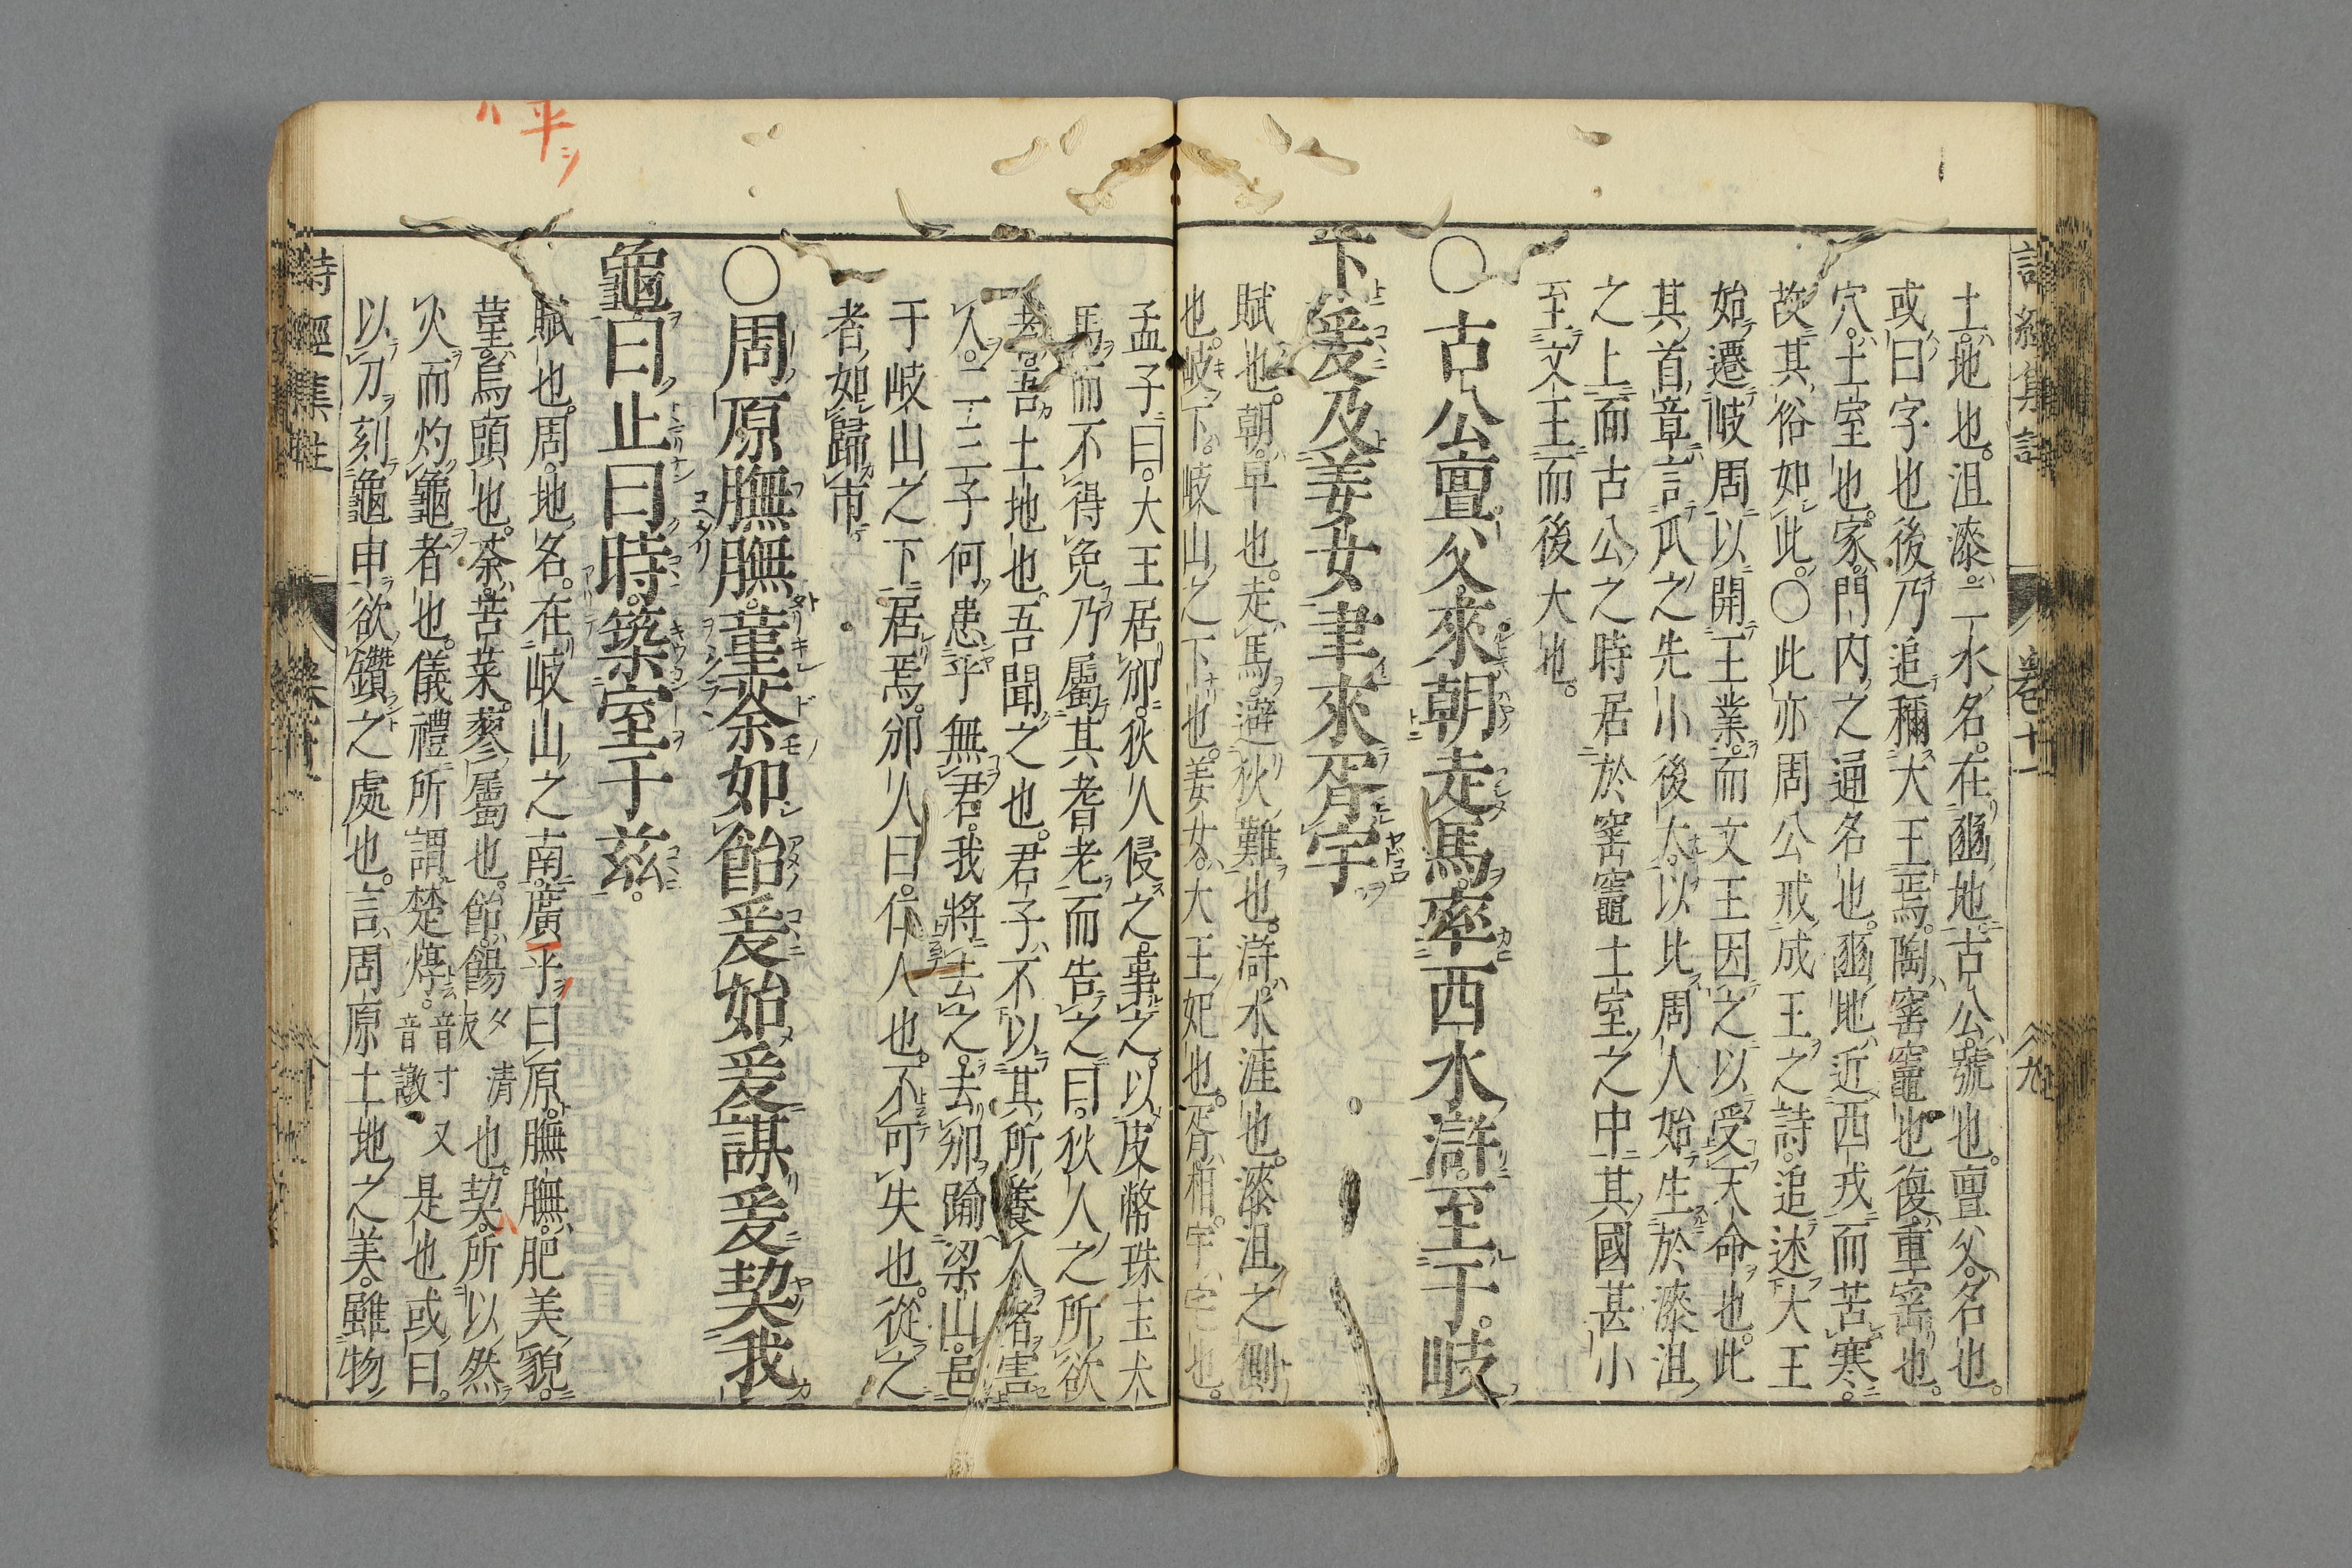 土地也。沮漆二水名。在豳地。古公號也。亶父名也。
或曰字也後乃追稱大王焉。陶窰竈也復重窰也。
穴土室也。家門內之通名也。豳地近西戎而苦寒。
故其俗如此。○此亦周公戒成王之詩。追述大王
始遷岐周以開王業。而文王因之以受天命也。此
其首章言瓜之先小後大。以比周人始生於漆沮
之上而古公之時居於窰竈土室之中其國甚小
至文王而後大也。
○古公亶父來朝走馬率西水滸至于。岐
下爰及姜女聿來胥宇
賦也。朝早也。走馬避狄難也。滸水涯也。漆沮之側
也。岐下岐山之下也。姜女大王妃也。胥相。宇宅也。
孟子曰。大王居邠。狄人侵之。事之。以皮幣珠玉犬
馬而不得免乃屬其耆老而告之曰。狄人之所欲
者吾土地也吾聞之也。君子不以其所養人者害
人。二三子何患乎無君。我將去之。去邠踰梁山。邑
于岐山之下居焉。邠人曰。仁人也。不可失也。從之
者如歸市
○周原膴膴。菫荼如飴爰始爰謀爰契我
龜曰止曰時。築室于茲。
賦也。周。地名。在岐山之南。廣平曰原。膴膴肥美貌。
菫烏頭也。荼苦菜。蓼屬也。飴餳 夕清反 也。契所以然
火而灼龜者也。儀禮所謂楚焞。音寸又音譈 是也或曰。
以刀刻龜甲欲鑽之處也。言周原土地之美。雖物
詩經集註
卷十一
九
平シ
ハ